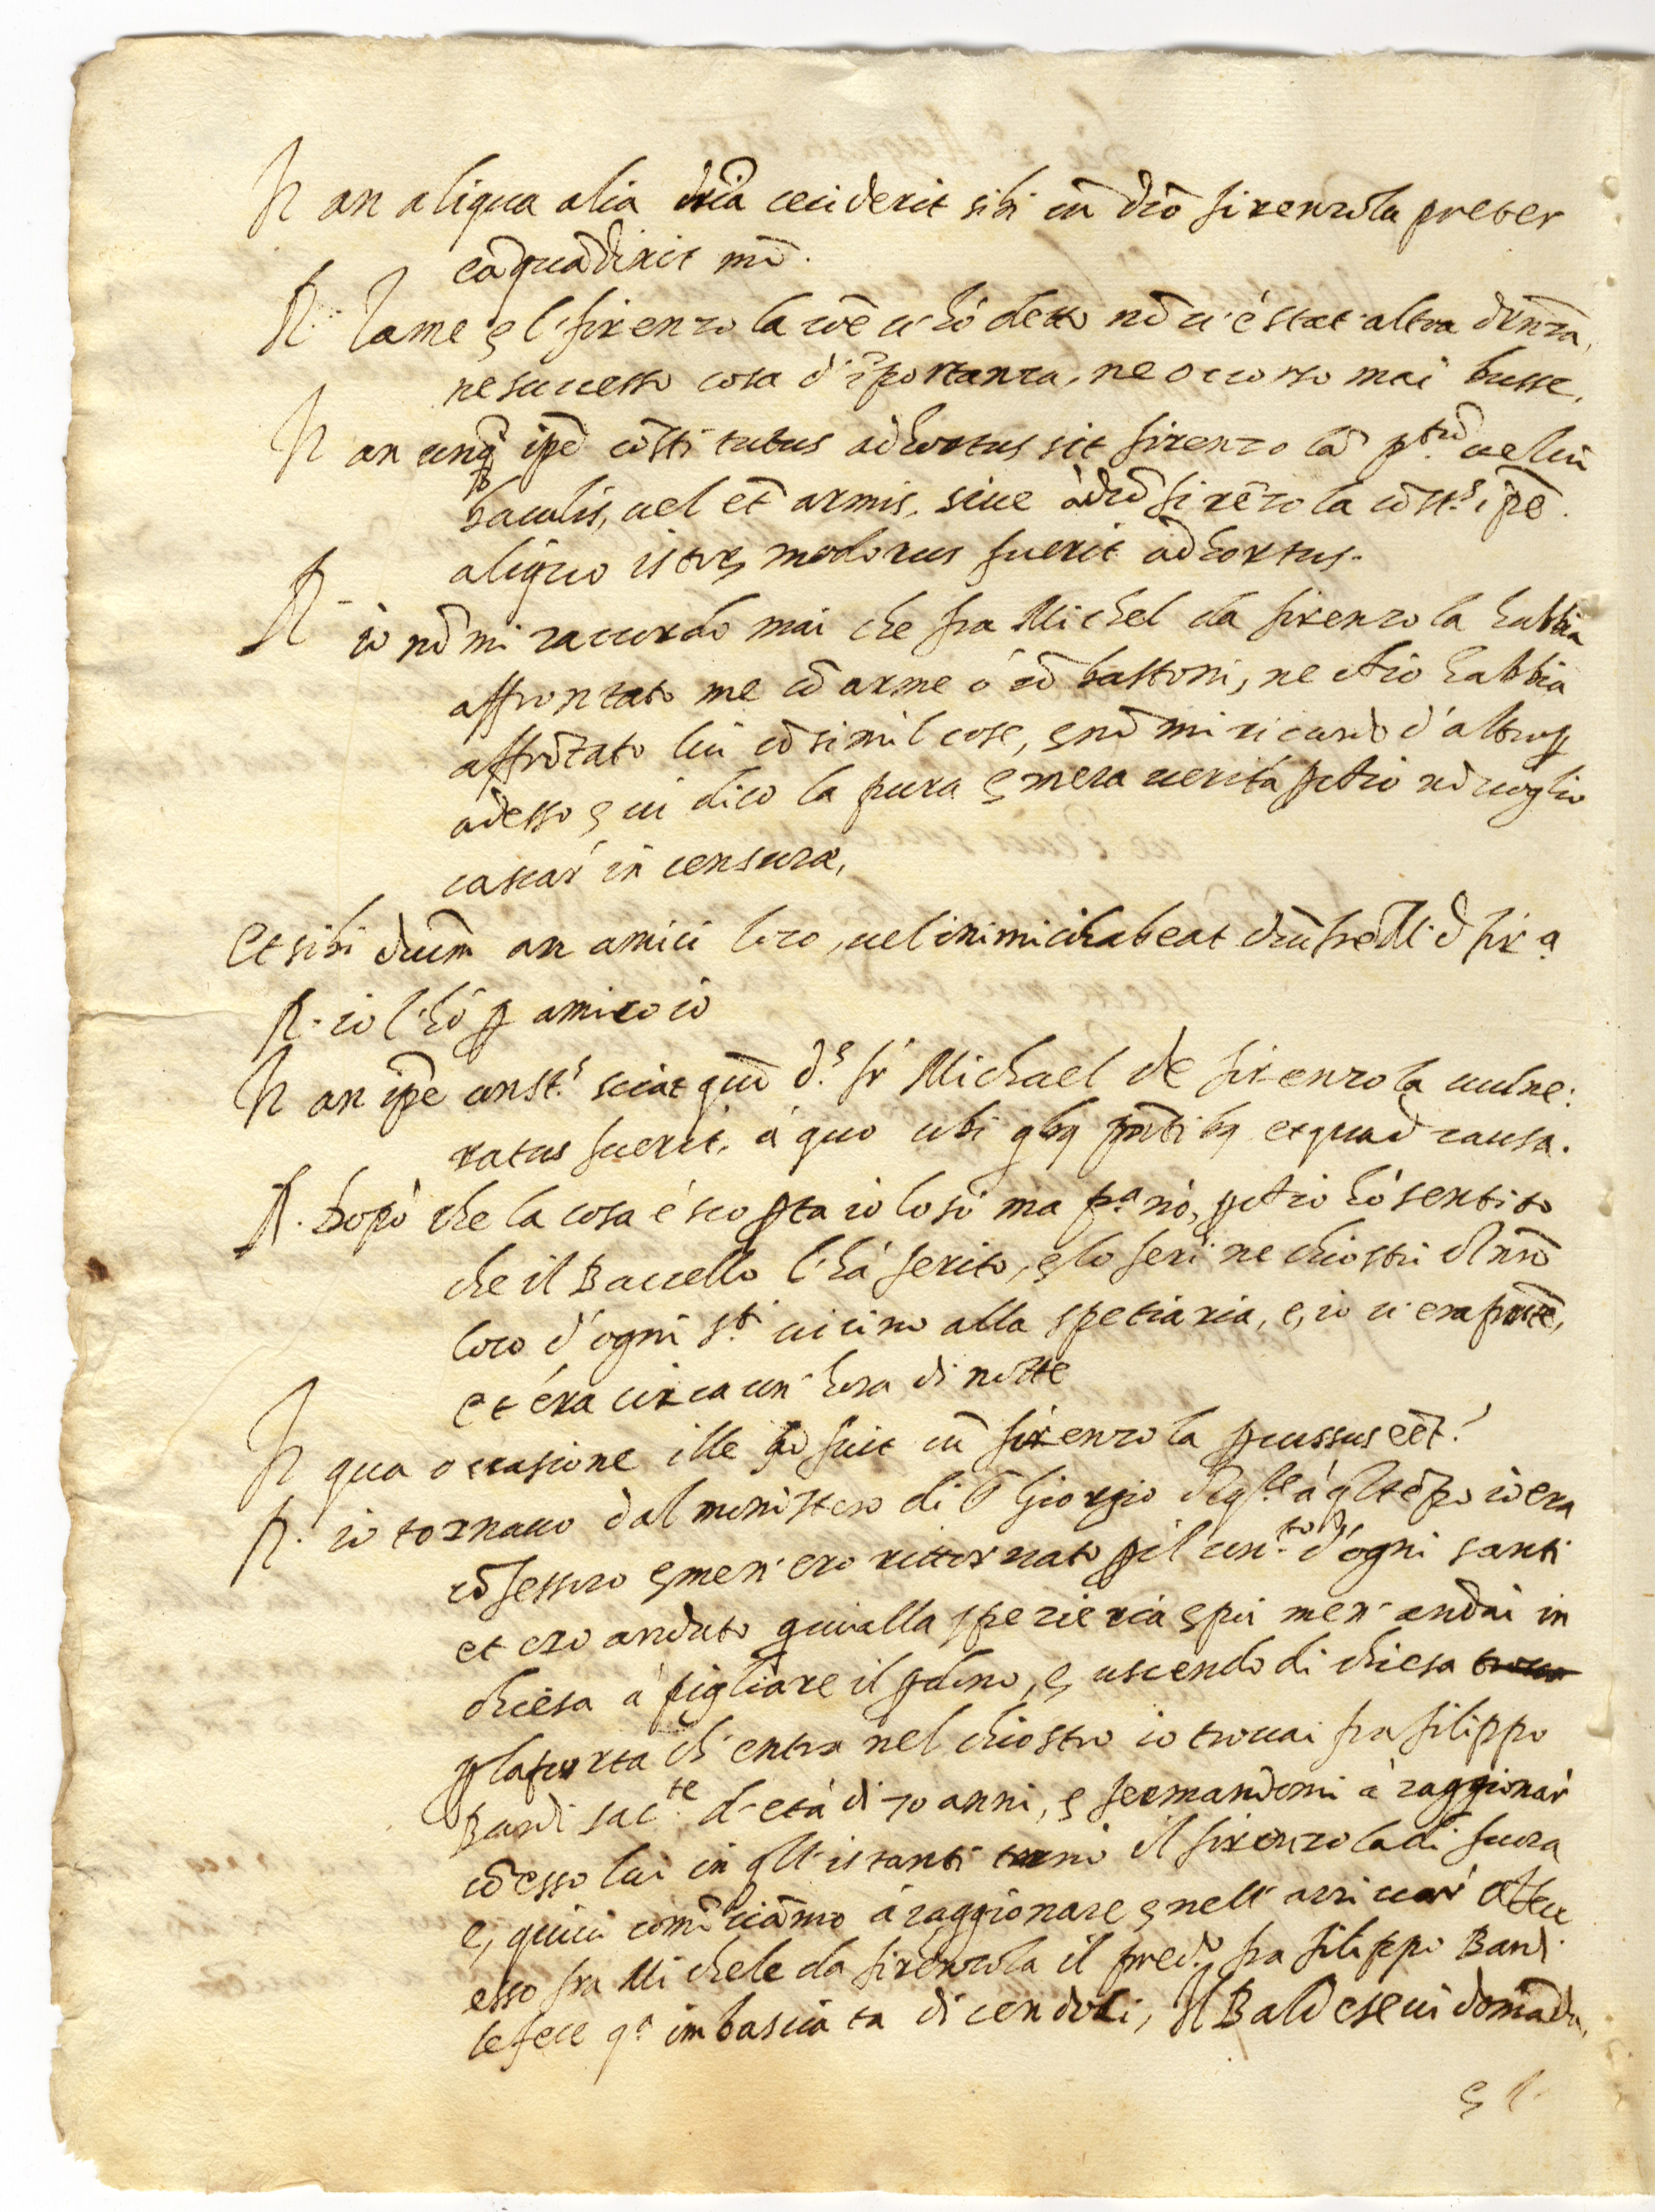 Jn an aliqua alia dria ceciderit sibi cū dcō firenzola preter
eā quā dixit mō.
R. Tra me e 'l firenzola cōe ci hò detto nō ci è stat' altra drnza,
ne successo cosa d'īportanza, ne occorso mai busse.
Jn an unq ipē cōstitutus adhortus sit firenzolā pttū vel cū
baculis, vel et armis, sive à dcō firēzola cōst.s ipē
aliquo istor modorus fuerit adhortus.
R. io nō mi raccordo mai che fra Michel da firenzola habbia
affrontato me cō arme ó cō bastoni, ne ch'io habbia
affrōtato lui cō simil cose, e nō mi ricordo d'altro p
adesso e vi dico la pura e mera verità p ch'io nō voglio
cascar' in censura,
Et sibi dictum an amici loco, vel inimici habeat dictū frē M. d fir.a
R. io l'hò p amico io
Jn an ipē const.s sciat quū d.s fr Michael de firenzola vulne:
ratus fuerit, à quo ubi qbq pn̄tibq et qua d causa.
R. Dopò che la cosa è scoperta io lo sò ma p.a nò, p ch'io hò sentito
che il Baccello l'hà ferito, e lo ferì ne chiostri d nrō
loco d'ogni s.ti vicino alla spetiaria, e, io v'era pn̄te,
et era circa un' hora di notte
Jn qua occasione ille fuit cū firenzola pcussus eēt?
R. io tornavo dal monistero di S Giorgio d q.le à ql tēpo io era
cōfessoro e men' ero rittornato p il con.to d'ogni santi
et ero andato quivi alla spezieria e poi men' andai in
chiesa a pigliare il pdono, e uscendo di chiesa
p la porta ch' entra nel chiostro io trovai fra filippo
Bardi sac.te d'età di 70 anni, e fermandomi à raggionar'
cō esso lui in qll' istanti il firenzola di fuora
e, quivi comīciāmo à raggionare e nell' arrivar'
esso fra Michele da firenzola il pred.o fra filippo Bardi
le fece q.a imbasciata dicendoli, Il Baldese vi domāda,
e l'